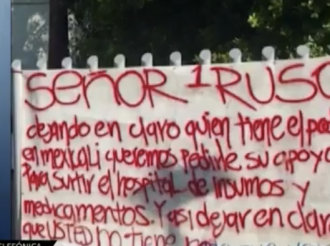 SEÑOR 1 RUSO
dejando en claro quien tiene el
en mexicali queremos pedirle su apoyo
Para surtir el hospital de insumos y
medicamentos. Y asi dejar en
que USTED tiene
TELEFÓNICA